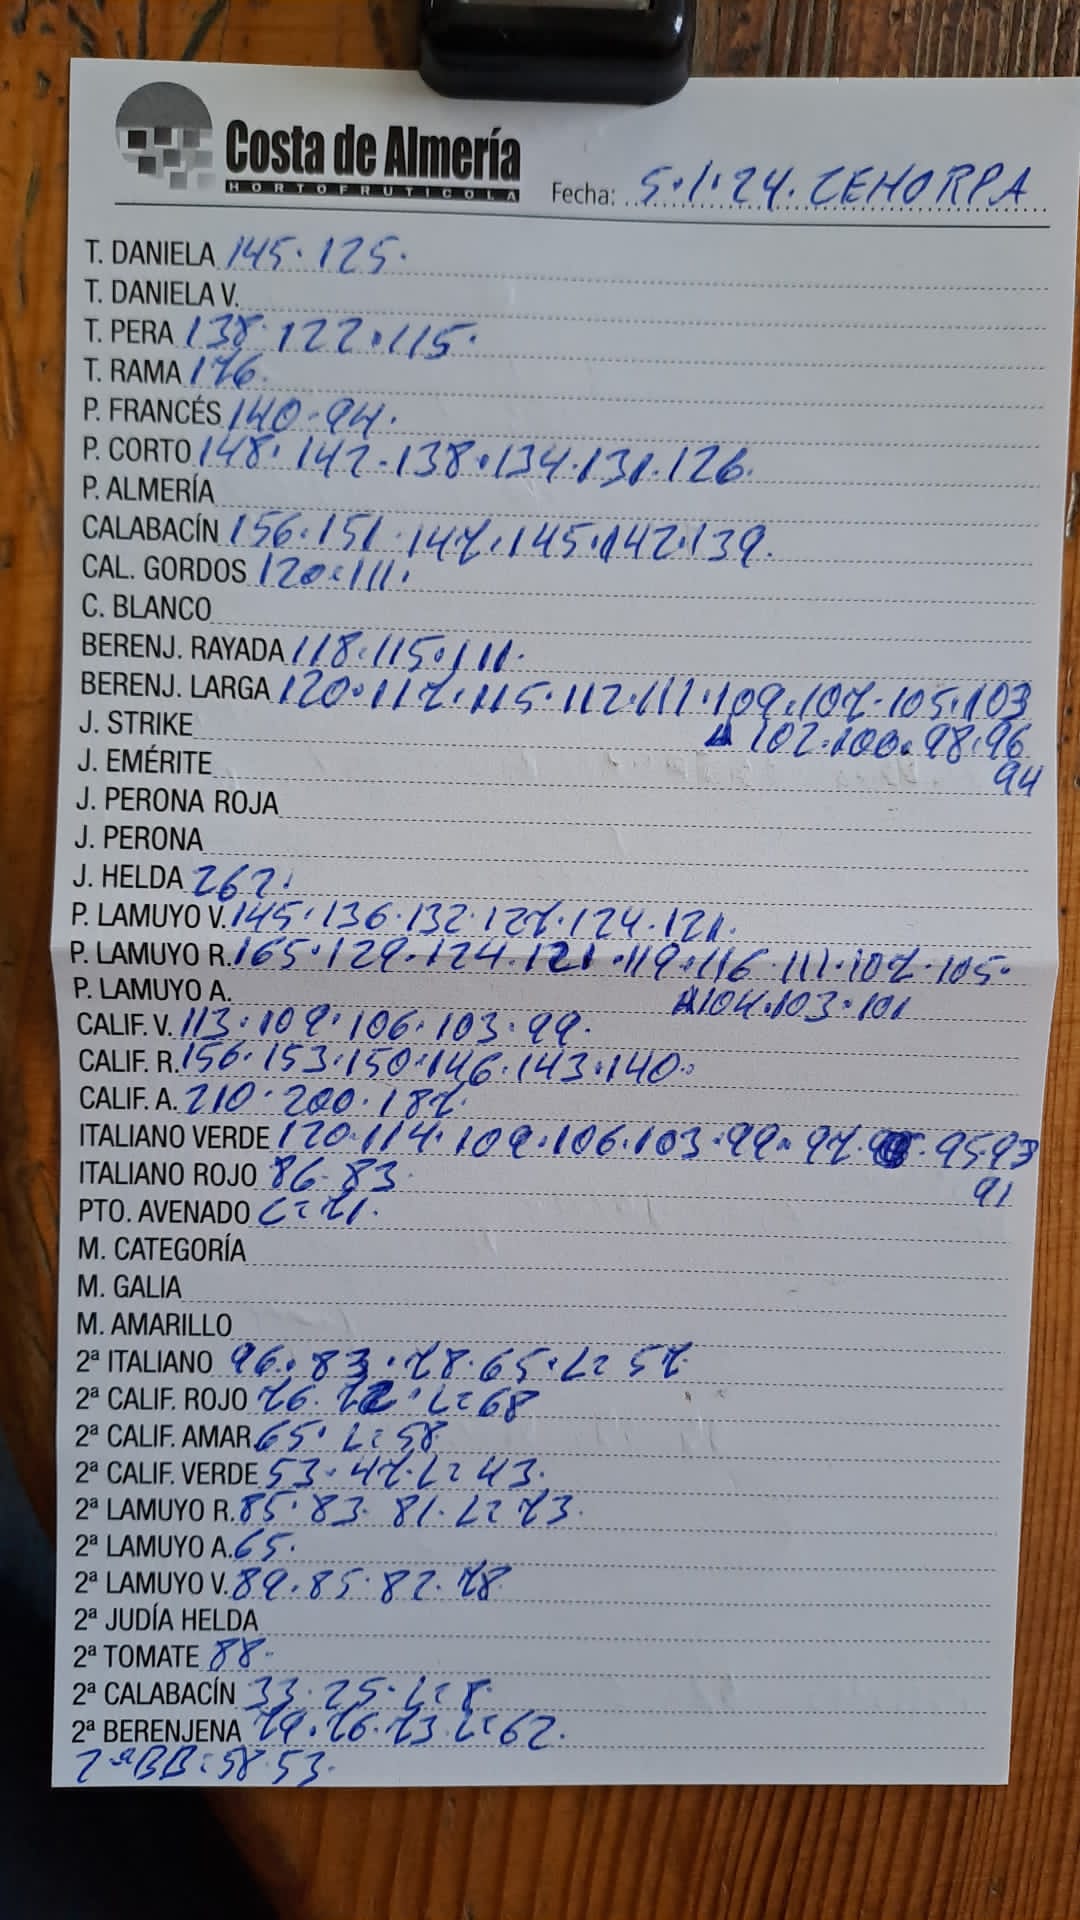 Costa de Almería
HORTOFRUTICOLA
Fecha: 5.1.24. CEHORPA
T. DANIELA 145. 125.
T. DANIELA V.
T. PERA 138. 122. 115.
T. RAMA 176.
P. FRANCÉS 140. 94.
P. CORTO 148. 142. 138. 134. 131. 126.
P. ALMERÍA
CALABACÍN 156. 151. 147. 145. 142. 139.
CAL. GORDOS 120. 111.
C. BLANCO
BERENJ. RAYADA 118. 115. 111.
BERENJ. LARGA 120. 117. 115. 112. 111. 109. 107. 105. 103
J. STRIKE
102. 100. 98. 96
J. EMÉRITE
94
J. PERONA ROJA
J. PERONA
J. HELDA 262.
P. LAMUYO V. 145. 136. 132. 127. 124. 121.
P. LAMUYO R. 165. 129. 124. 121. 119. 116. 111. 107. 105.
P. LAMUYO A.
104. 103. 101
CALIF. V. 113. 109. 106. 103. 99.
CALIF. R. 156. 153. 150. 146. 143. 140.
CALIF. A. 210. 200. 187.
ITALIANO VERDE 120. 114. 109. 106. 103. 99. 97. 95. 93
ITALIANO ROJO 86. 83.
91
PTO. AVENADO L= 71.
M. CATEGORÍA
M. GALIA
M. AMARILLO
2ª ITALIANO 96. 83. 78. 65. L= 57
2ª CALIF. ROJO 76. L= 68
2ª CALIF. AMAR. 65. L= 58
2ª CALIF. VERDE 53. 47. L= 43.
2ª LAMUYO R. 85. 83. 81. L= 73.
2ª LAMUYO A. 65.
2ª LAMUYO V. 89. 85. 82. 78
2ª JUDÍA HELDA
2ª TOMATE 88.
2ª CALABACÍN 33. 25. L= 8.
2ª BERENJENA 79. 76. 73. L= 62.
2ª BB: 58. 53.